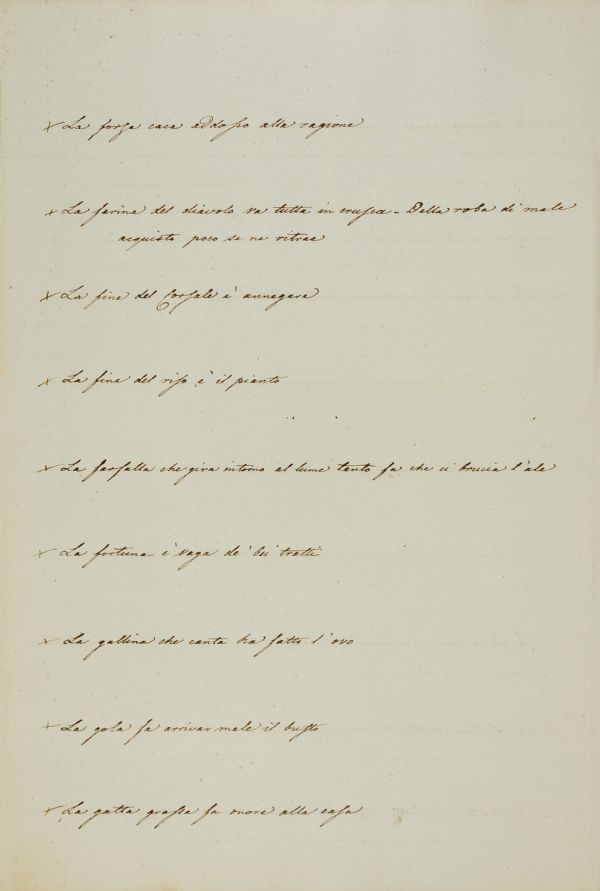 × La forza caca addosso alla ragione
× La farina del diavolo va tutta in crusca - Della roba di male
acquisto poco se ne ritrae
× La fine del Corsale è annegare
× La fine del riso è il pianto
× La farfalla che gira intorno al lume tanto fa che ci brucia l'ale
× La fortuna è vaga de' bei tratti
× La gallina che canta ha fatto l'ovo
× La gola fa arrivar male il busto
× La gatta grassa fa onore alla casa